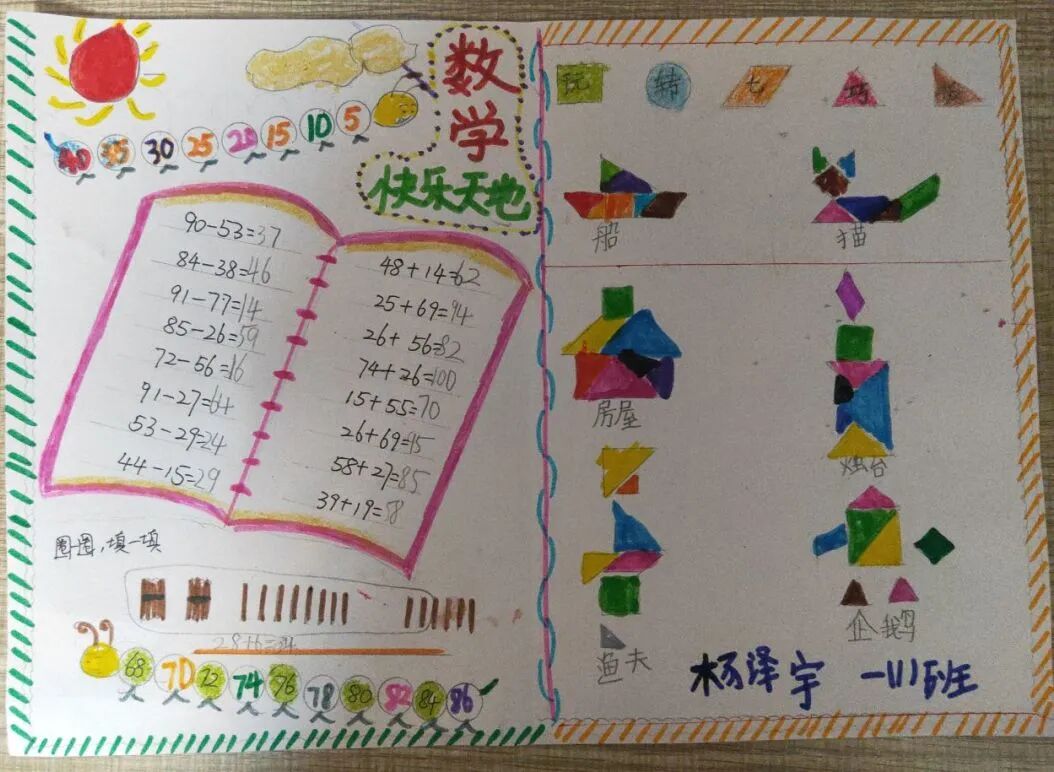 数学
快乐天地
40 35 30 25 20 15 10 5
90-53=37
84-38=46
91-77=14
85-26=59
72-56=16
91-27=64
53-29=24
44-15=29
48+14=62
25+69=94
26+56=82
74+26=100
15+55=70
26+69=95
58+27=85
39+19=58
圈圈,填一填
28+6=34
68 70 72 74 76 78 80 82 84 86
玩 转 七 巧 板
船 猫
房屋 烛台
渔夫 企鹅
杨泽宇 一(1)班